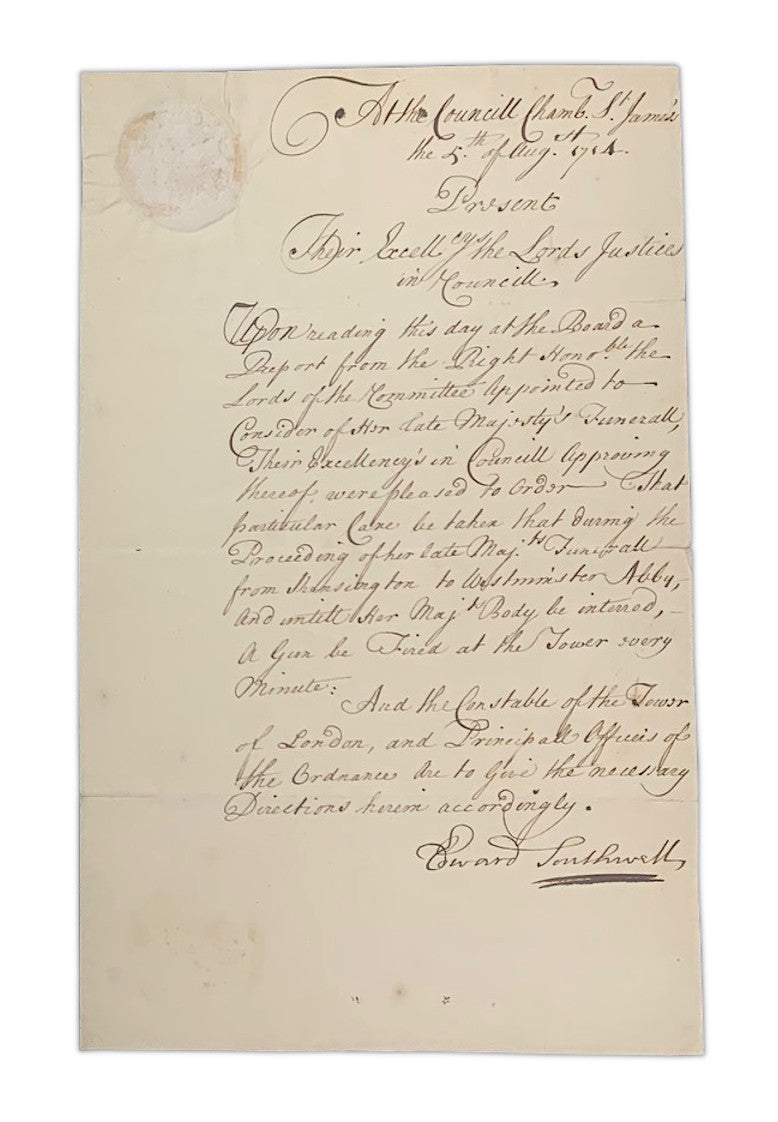 At the Councill Chamb. St. James's
the 5th of Augst. 1714.
Present
Their Excellcys the Lords Justices
in Councill.
Upon reading this day at the Board a
Report from the Right Honoble. the
Lords of the Committee Appointed to
Consider of Her late Majesty's Funerall,
Their Excellency's in Councill Approving
thereof, were pleased to Order That
particular Care be taken that during the
Proceeding of her late Maj.ts Funerall
from Kensington to Westminster Abby,
And untill Her Majts Body be interred,
A Gun be Fired at the Tower every
Minute: And the Constable of the Tower
of London, and Principall Officers of
the Ordnance Are to Give the necessary
Directions herein accordingly.
Edward Southwell